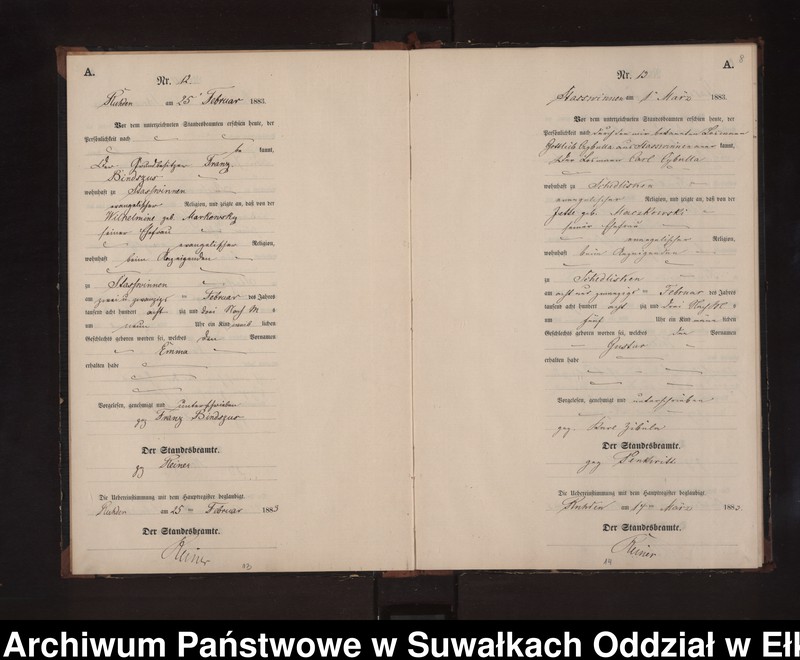 A.
Nr. 12.
am 25 Februar 1883.
Vor dem unterzeichneten Standesbeamten erschien heute, der
Persönlichkeit nach
be kannt,
Der Grundbesitzer Franz
Bindszus
wohnhaft zu Stasswinnen
evangelischer Religion, und zeigte an, daß von der
Wilhelmine geb. Markowsky
seiner Ehefrau
evangelischer Religion,
wohnhaft beim Anzeigenden
zu Stasswinnen
am zwei u. zwanzigs Februar des Jahres
tausend acht hundert acht zig und drei Nach M
um neun Uhr ein Kind weib lichen
Geschlechts geboren worden sei, welches den Vornamen
Emma
erhalten habe
Vorgelesen, genehmigt und unterschrieben
gz Franz Bindszus
Der Standesbeamte.
gz Reiner
Die Uebereinstimmung mit dem Hauptregister beglaubigt.
am 25 Februar 1883
Der Standesbeamte.
Reiner
A.
8
Nr. 13
Stasswinnen am 1 März 1883.
Vor dem unterzeichneten Standesbeamten erschien heute, der
Persönlichkeit nach durch den
Gottlieb Cybulla aus Stasswinnen aner kannt,
Carl Cybulla
wohnhaft zu Schedlisken
evangelischer Religion, und zeigte an, daß von der
Jette geb. Maczkowski
seiner Ehefrau
evangelischer Religion,
wohnhaft beim Anzeigenden
zu Schedlisken
am acht und zwanzigs Februar des Jahres
tausend acht hundert acht zig und drei Nach M
um fünf Uhr ein Kind männ lichen
Geschlechts geboren worden sei, welches den Vornamen
Gustav
erhalten habe
Vorgelesen, genehmigt und unterschrieben
gez Karl Zibula
Der Standesbeamte.
gez
Die Uebereinstimmung mit dem Hauptregister beglaubigt.
am 17 März 1883
Der Standesbeamte.
Reiner
Archiwum Państwowe w Suwałkach Oddział w Eł